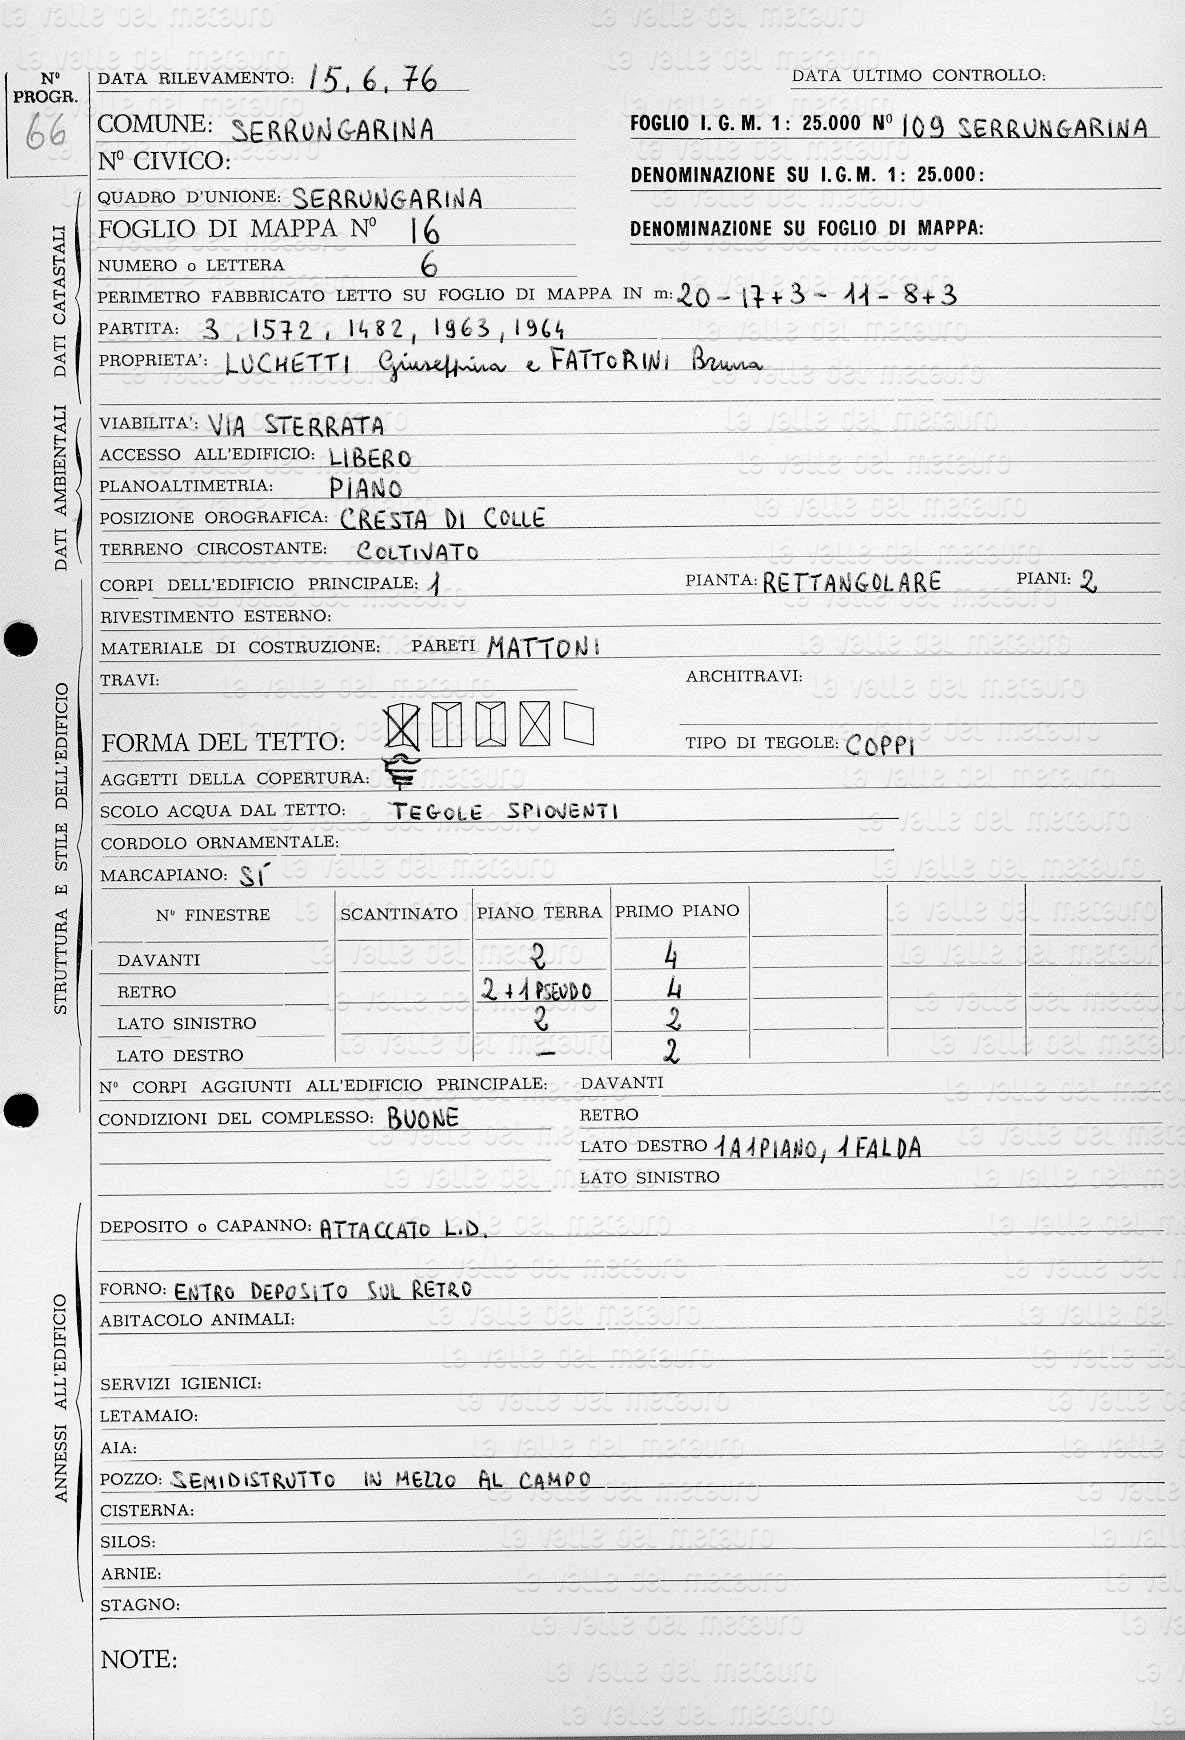 Nº PROGR.
66
DATA RILEVAMENTO: 15.6.76
DATA ULTIMO CONTROLLO:
COMUNE: SERRUNGARINA
FOGLIO I. G. M. 1: 25.000 Nº 109 SERRUNGARINA
Nº CIVICO:
DENOMINAZIONE SU I.G.M. 1: 25.000:
QUADRO D'UNIONE: SERRUNGARINA
FOGLIO DI MAPPA Nº 16
DENOMINAZIONE SU FOGLIO DI MAPPA:
NUMERO o LETTERA 6
PERIMETRO FABBRICATO LETTO SU FOGLIO DI MAPPA IN m: 20 - 17+3 - 11 - 8+3
PARTITA: 3, 1572, 1482, 1963, 1964
PROPRIETA': LUCHETTI Giuseppina e FATTORINI Bruna
DATI CATASTALI
VIABILITA': VIA STERRATA
ACCESSO ALL'EDIFICIO: LIBERO
PLANOALTIMETRIA: PIANO
POSIZIONE OROGRAFICA: CRESTA DI COLLE
TERRENO CIRCOSTANTE: COLTIVATO
DATI AMBIENTALI
CORPI DELL'EDIFICIO PRINCIPALE: 1 PIANTA: RETTANGOLARE PIANI: 2
RIVESTIMENTO ESTERNO:
MATERIALE DI COSTRUZIONE: PARETI MATTONI
TRAVI: ARCHITRAVI:
FORMA DEL TETTO: TIPO DI TEGOLE: COPPI
AGGETTI DELLA COPERTURA:
SCOLO ACQUA DAL TETTO: TEGOLE SPIOVENTI
CORDOLO ORNAMENTALE:
MARCAPIANO: SÍ
Nº FINESTRE SCANTINATO PIANO TERRA PRIMO PIANO
DAVANTI 2 4
RETRO 2+1 PSEUDO 4
LATO SINISTRO 2 2
LATO DESTRO – 2
STRUTTURA E STILE DELL'EDIFICIO
Nº CORPI AGGIUNTI ALL'EDIFICIO PRINCIPALE: DAVANTI
CONDIZIONI DEL COMPLESSO: BUONE RETRO
LATO DESTRO 1 A 1 PIANO, 1 FALDA
LATO SINISTRO
DEPOSITO o CAPANNO: ATTACCATO L.D.
FORNO: ENTRO DEPOSITO SUL RETRO
ABITACOLO ANIMALI:
SERVIZI IGIENICI:
LETAMAIO:
AIA:
POZZO: SEMIDISTRUTTO IN MEZZO AL CAMPO
CISTERNA:
SILOS:
ARNIE:
STAGNO:
ANNESSI ALL'EDIFICIO
NOTE:
la valle del metauro